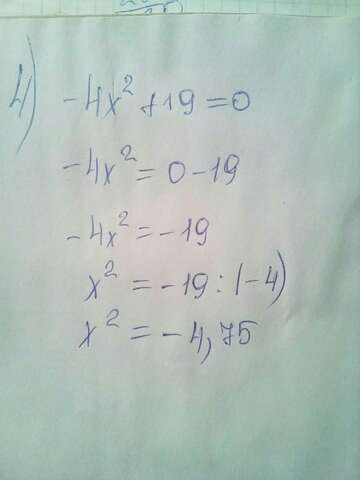 4) -4x² + 19 = 0
-4x² = 0 - 19
-4x² = -19
x² = -19 : (-4)
x² = -4,75